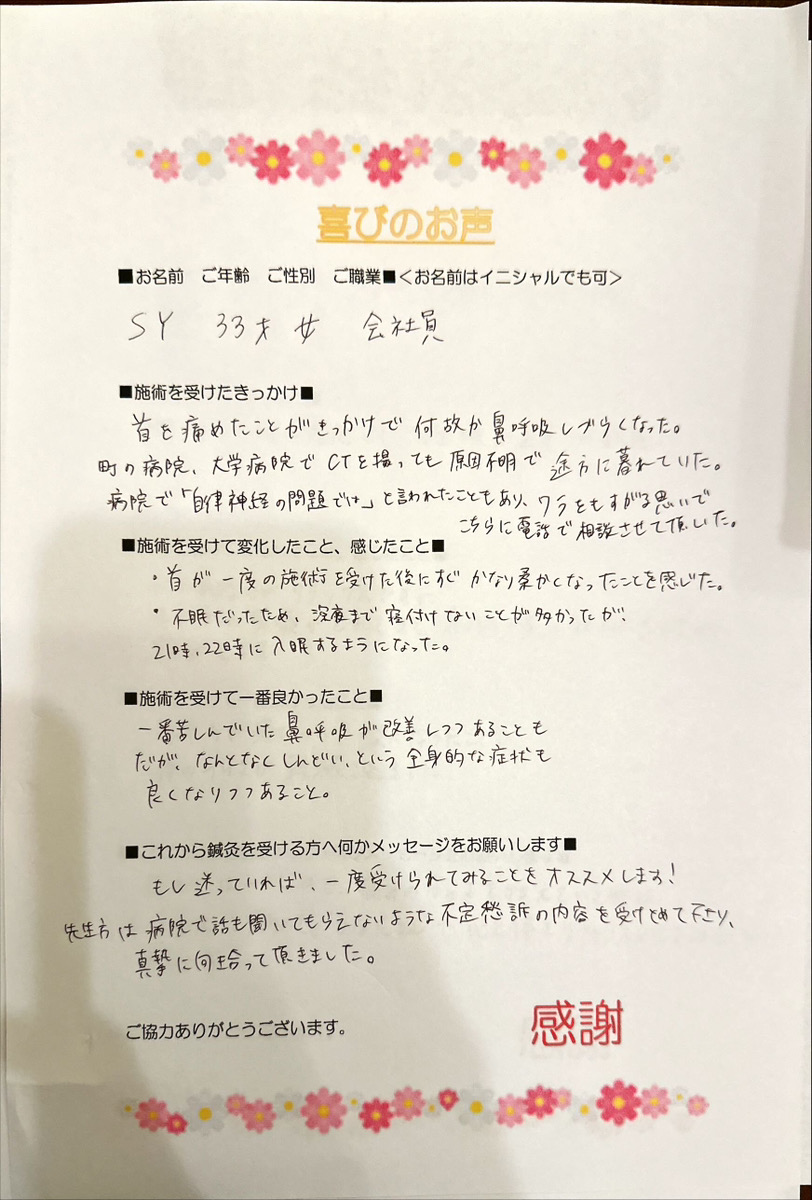 喜びのお声
■お名前 ご年齢 ご性別 ご職業■<お名前はイニシャルでも可>
SY 33才 女 会社員
■施術を受けたきっかけ■
首を痛めたことがきっかけで何故か鼻呼吸しづらくなった。
町の病院、大学病院でCTを撮っても原因不明で途方に暮れていた。
病院で「自律神経の問題では」と言われたこともあり、ワラをもすがる思いで
こちらに電話で相談させて頂いた。
■施術を受けて変化したこと、感じたこと■
・首が一度の施術を受けた後にすぐかなり柔かくなったことを感じた。
・不眠だったため、深夜まで寝付けないことが多かったが、
21時、22時に入眠するようになった。
■施術を受けて一番良かったこと■
一番苦しんでいた鼻呼吸が改善しつつあることも
だが、なんとなくしんどい、という全身的な症状も
良くなりつつあること。
■これから鍼灸を受ける方へ何かメッセージをお願いします■
もし迷っていれば、一度受けられてみることをオススメします!
先生方は病院で話も聞いてもらえないような不定愁訴の内容を受けとめて下さり、
真摯に向き合って頂きました。
ご協力ありがとうございます。
感謝